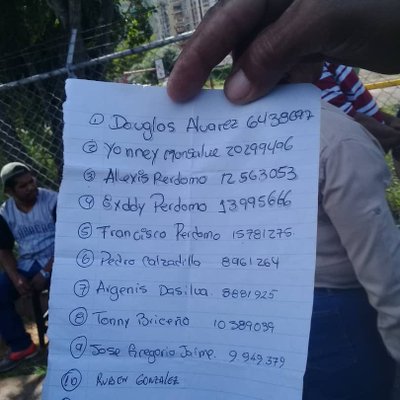 1 Douglos Alvarez 6438697
2 Yonney Monsalve 20299406
3 Alexis Perdomo 12563053
4 Exddy Perdomo 13995666
5 Francisco Perdomo 15781275
6 Pedro Calzadilla 8961264
7 Argenis Dasilva 8881925
8 Tonny Briceño 10389039
9 Jose Gregorio Jaime 9949379
10 RUBEN GONZALEZ